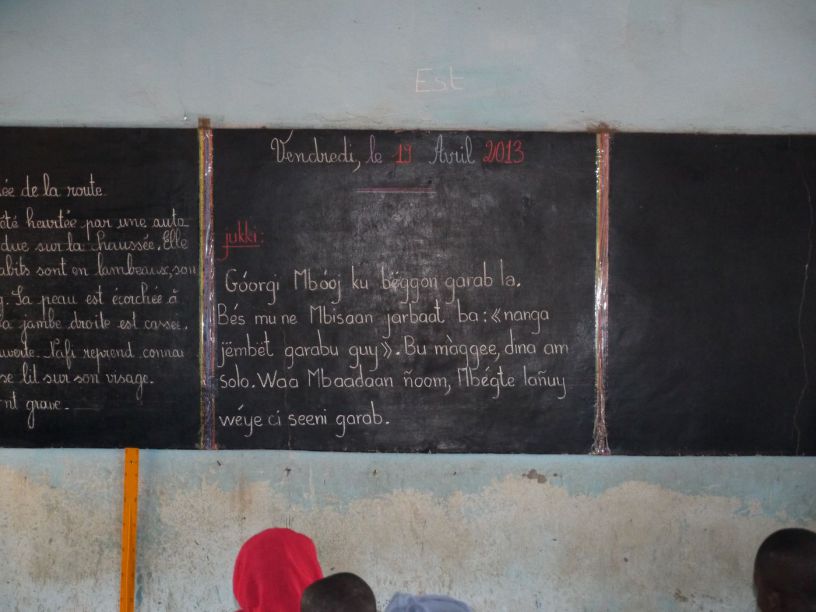 Est
ée de la route
été heurtée par une auto
due sur la chaussée. Elle
abits sont en lambeaux, son
g. Sa peau est écorchée à
a jambe droite est cassée.
uverte. Nafi reprend connai
se lit sur son visage.
nt grave.
Vendredi, le 19 Avril 2013
jukki:
Góorgi Mbóoj ku bëggon garab la.
Bés mu ne Mbisaan jarbaat ba: «nanga
jëmbët garabu guy». Bu màggee, dina am
solo. Waa Mbaadaan ñoom, Mbégte lañuy
wéye ci seeni garab.